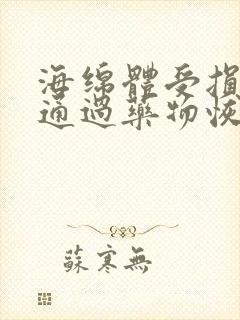 海綿體受損
通過藥物恢
蘇寒無